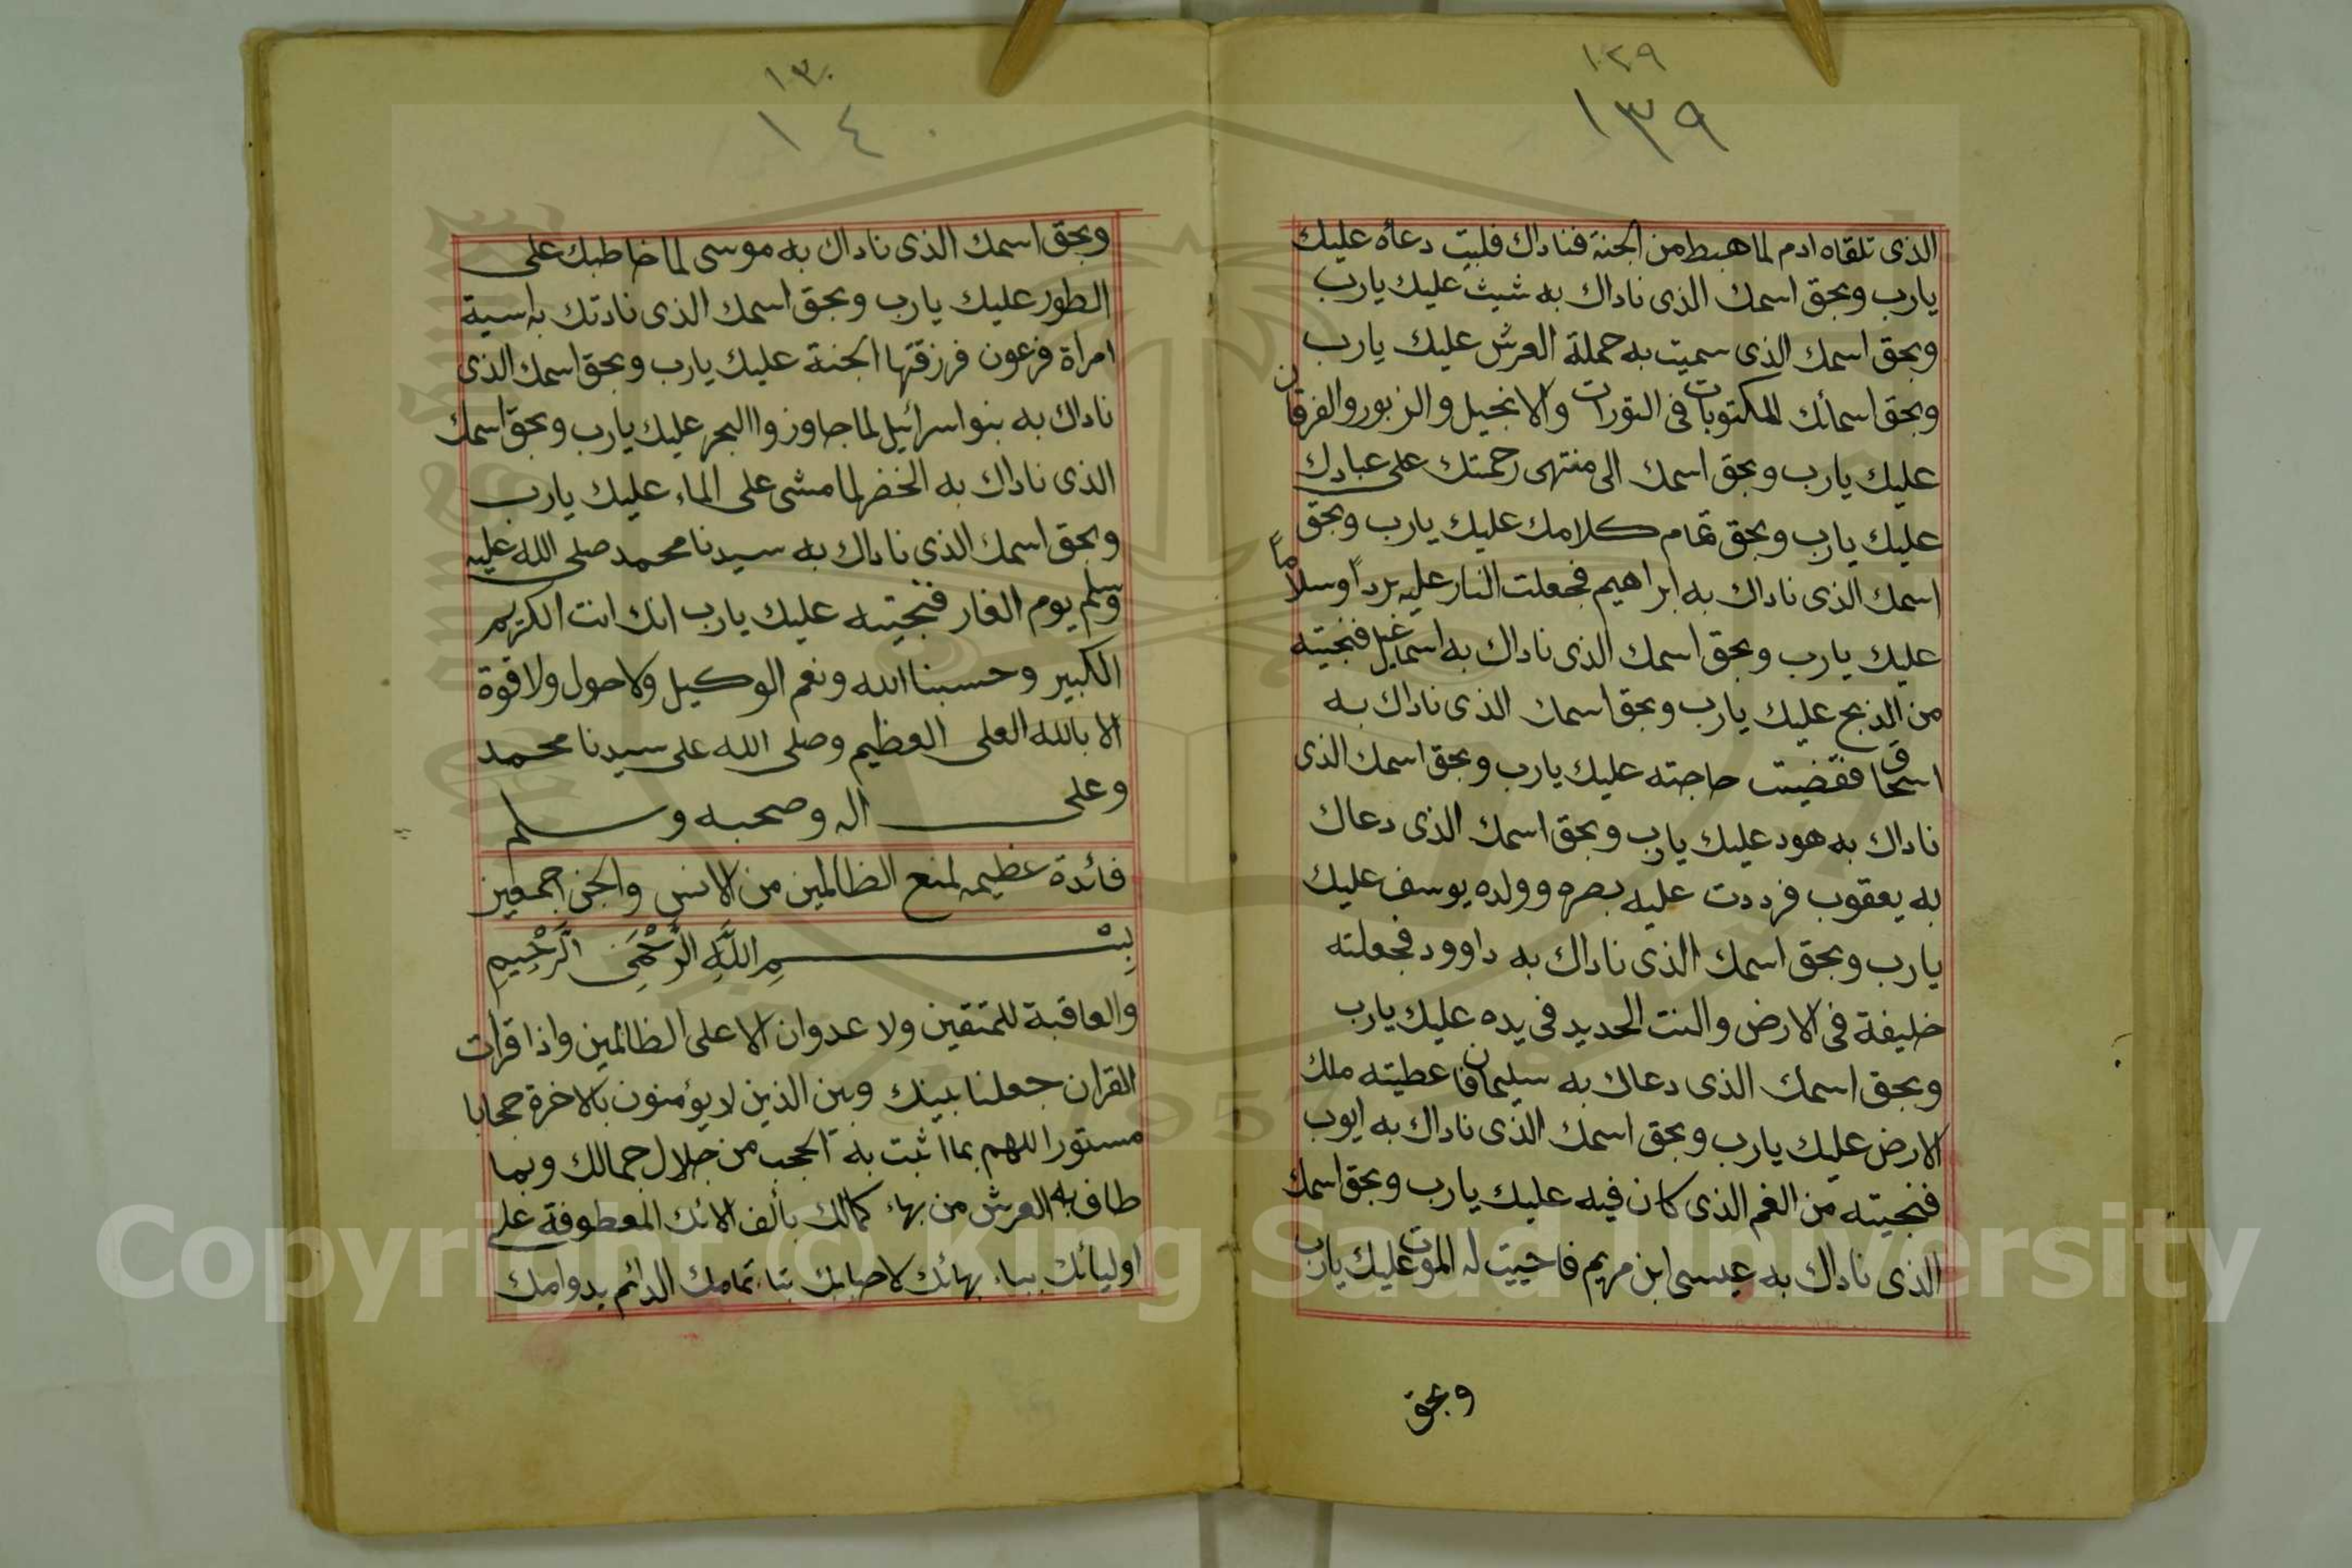 ١٢٩
١٣٩
الذى تلقاه ادم لما هبط من الجنة فناداك فلبيت دعاه عليك
يارب وبحق اسمك الذى ناداك به شيث عليك يارب
وبحق اسمك الذى سميت به حملة العرش عليك يارب
وبحق اسمائك المكتوبات فى التورات والانجيل والزبور والفرقان
عليك يارب وبحق اسمك الى منتهى رحمتك على عبادك
عليك يارب وبحق تمام كلامك عليك يارب وبحق
اسمك الذى ناداك به ابراهيم فجعلت النار عليه برداً وسلاماً
عليك يارب وبحق اسمك الذى ناداك به اسماعيل فنجيته
من الذبح عليك يارب وبحق اسمك الذى ناداك به
اسحاق فقضيت حاجته عليك يارب وبحق اسمك الذى
ناداك به هود عليك يارب وبحق اسمك الذى دعاك
به يعقوب فرددت عليه بصره وولده يوسف عليك
يارب وبحق اسمك الذى ناداك به داوود فجعلته
خليفة فى الارض والنت الحديد فى يده عليك يارب
وبحق اسمك الذى دعاك به سليمان فاعطيته ملك
الارض عليك يارب وبحق اسمك الذى ناداك به ايوب
فنجيته من الغم الذى كان فيه عليك يارب وبحق اسمك
الذى ناداك به عيسى ابن مريم فاحييت له الموت عليك يارب
وبحق
١٣٠
١٤٠
وبحق اسمك الذى ناداك به موسى لما خاطبك على
الطور عليك يارب وبحق اسمك الذى نادتك به اسية
امراة فرعون فرزقتها الجنة عليك يارب وبحق اسمك الذى
ناداك به بنو اسرائيل لما جاوزوا البحر عليك يارب وبحق اسمك
الذى ناداك به الخضر لما مشى على الماء عليك يارب
وبحق اسمك الذى ناداك به سيدنا محمد صلى الله عليه
وسلم يوم الغار فنجيته عليك يارب انك انت الكريم
الكبير وحسبنا الله ونعم الوكيل ولا حول ولا قوة
الا بالله العلى العظيم وصلى الله على سيدنا محمد
وعلى اله وصحبه وسلم
فائدة عظيمه لمنع الظالمين من الانس والجن اجمعين
بِسْمِ اللَّهِ الرَّحْمَنِ الرَّحِيمِ
والعاقبة للمتقين ولا عدوان الا على الظالمين واذا قرات
القران جعلنا بينك وبين الذين لا يؤمنون بالاخرة حجابا
مستورا اللهم بما اثبت به الحجب من جلال جمالك وبما
طاف به العرش من بهاء كمالك بألف الائك المعطوفة على
اوليائك بباء بهائك لاحبابك بتاء تمامك الدائم بدوامك
Copyright © King Saud University
1957